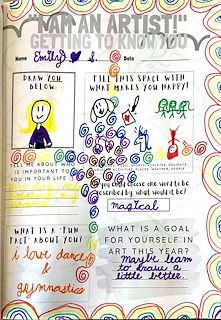 "I AM AN ARTIST!"
GETTING TO KNOW YOU
Name Emily S. Date
DRAW YOU
BELOW.
FILL THIS SPACE WITH
WHAT MAKES YOU HAPPY!
TELL ME ABOUT WHO
IS IMPORTANT TO
YOU IN YOUR LIFE
you could choose one word to be
described by what would it be?
magical
WHAT IS A "FUN
FACT" ABOUT YOU?
i love dance
&
gymnastics
WHAT IS A GOAL
FOR YOURSELF IN
ART THIS YEAR?
Maybe learn
to draw a
little better.